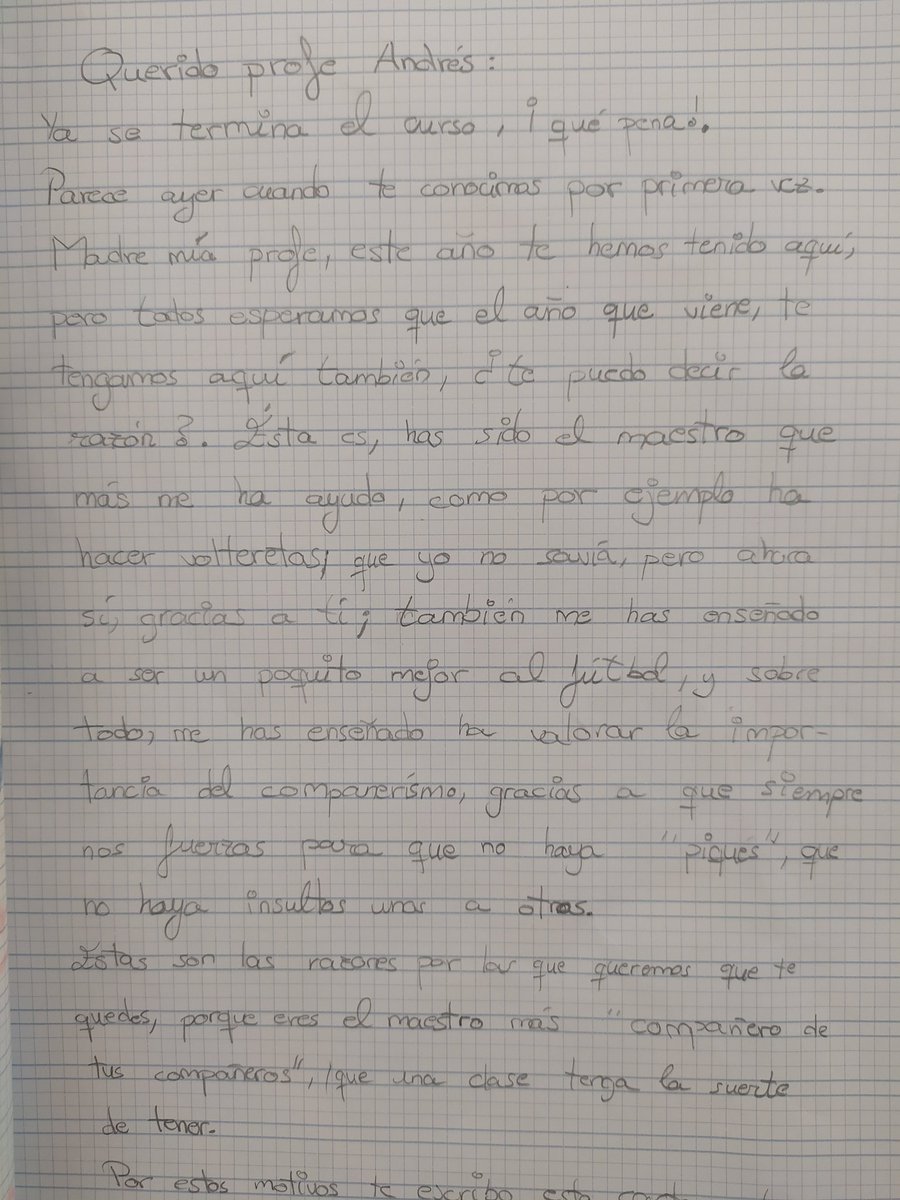 Querido profe Andrés:
Ya se termina el curso, ¡qué pena!.
Parece ayer cuando te conocimos por primera vez.
Madre mía profe, este año te hemos tenido aquí,
pero todos esperamos que el año que viene, te
tengamos aquí también, ¿te puedo decir la
razón?. Ésta es, has sido el maestro que
más me ha ayudo, como por ejemplo ha
hacer volteretas, que yo no savía, pero ahora
sí, gracias a tí; también me has enseñado
a ser un poquito mejor al fútbol, y sobre
todo, me has enseñado ha valorar la impor-
tancia del compañerísmo, gracias a que siempre
nos fuerzas para que no haya "piques", que
no haya insultos unos a otros.
Éstas son las razones por las que queremos que te
quedes, porque eres el maestro más "compañero de
tus compañeros", que una clase tenga la suerte
de tener.
Por estos motivos te escribo esta carta